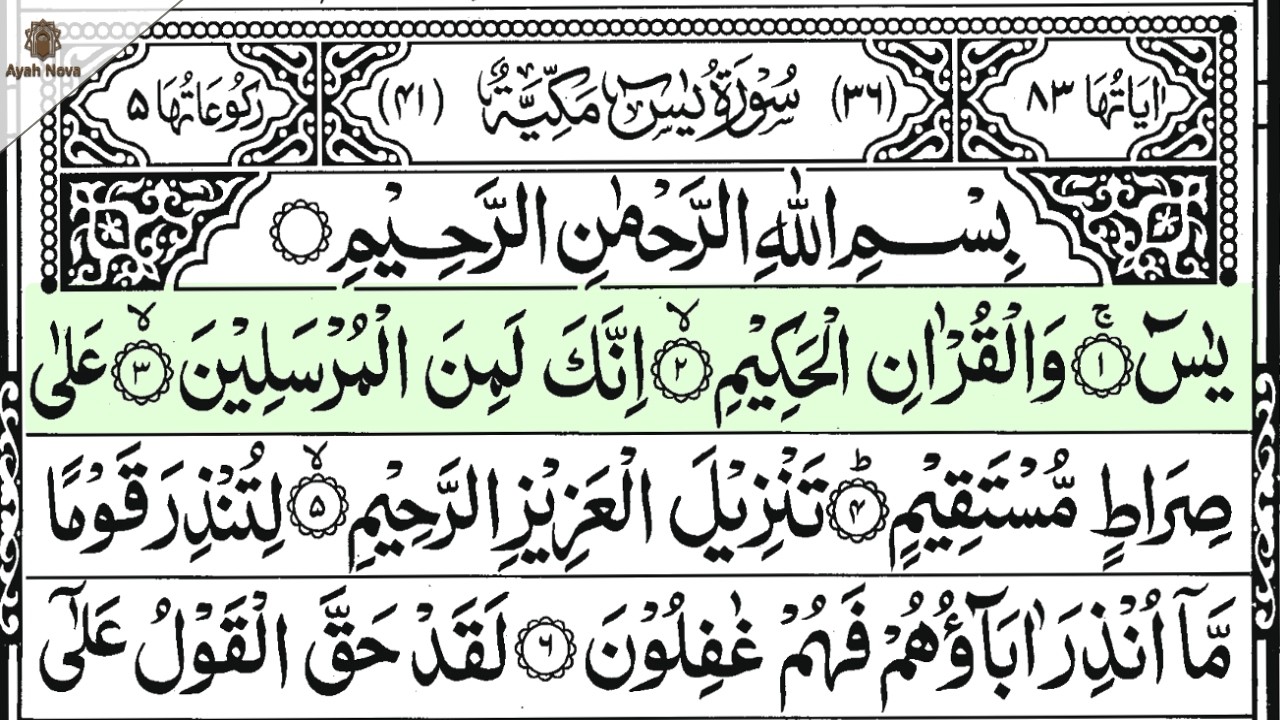 Ayah Nova
اٰيَاتُهَا ٨٣ (٣٦) سُوْرَةُ يٰسٓ مَكِّيَّةٌ (٤١) رُكُوْعَاتُهَا ٥
بِسْمِ اللّٰهِ الرَّحْمٰنِ الرَّحِيْمِ
يٰسٓ ۚ ﴿١﴾ وَالْقُرْاٰنِ الْحَكِيْمِ ۙ ﴿٢﴾ اِنَّكَ لَمِنَ الْمُرْسَلِيْنَ ۙ ﴿٣﴾ عَلٰى
صِرَاطٍ مُّسْتَقِيْمٍ ؕ ﴿۴﴾ تَنْزِيْلَ الْعَزِيْزِ الرَّحِيْمِ ۙ ﴿۵﴾ لِتُنْذِرَ قَوْمًا
مَّآ اُنْذِرَ اٰبَآؤُهُمْ فَهُمْ غٰفِلُوْنَ ﴿۶﴾ لَقَدْ حَقَّ الْقَوْلُ عَلٰٓى